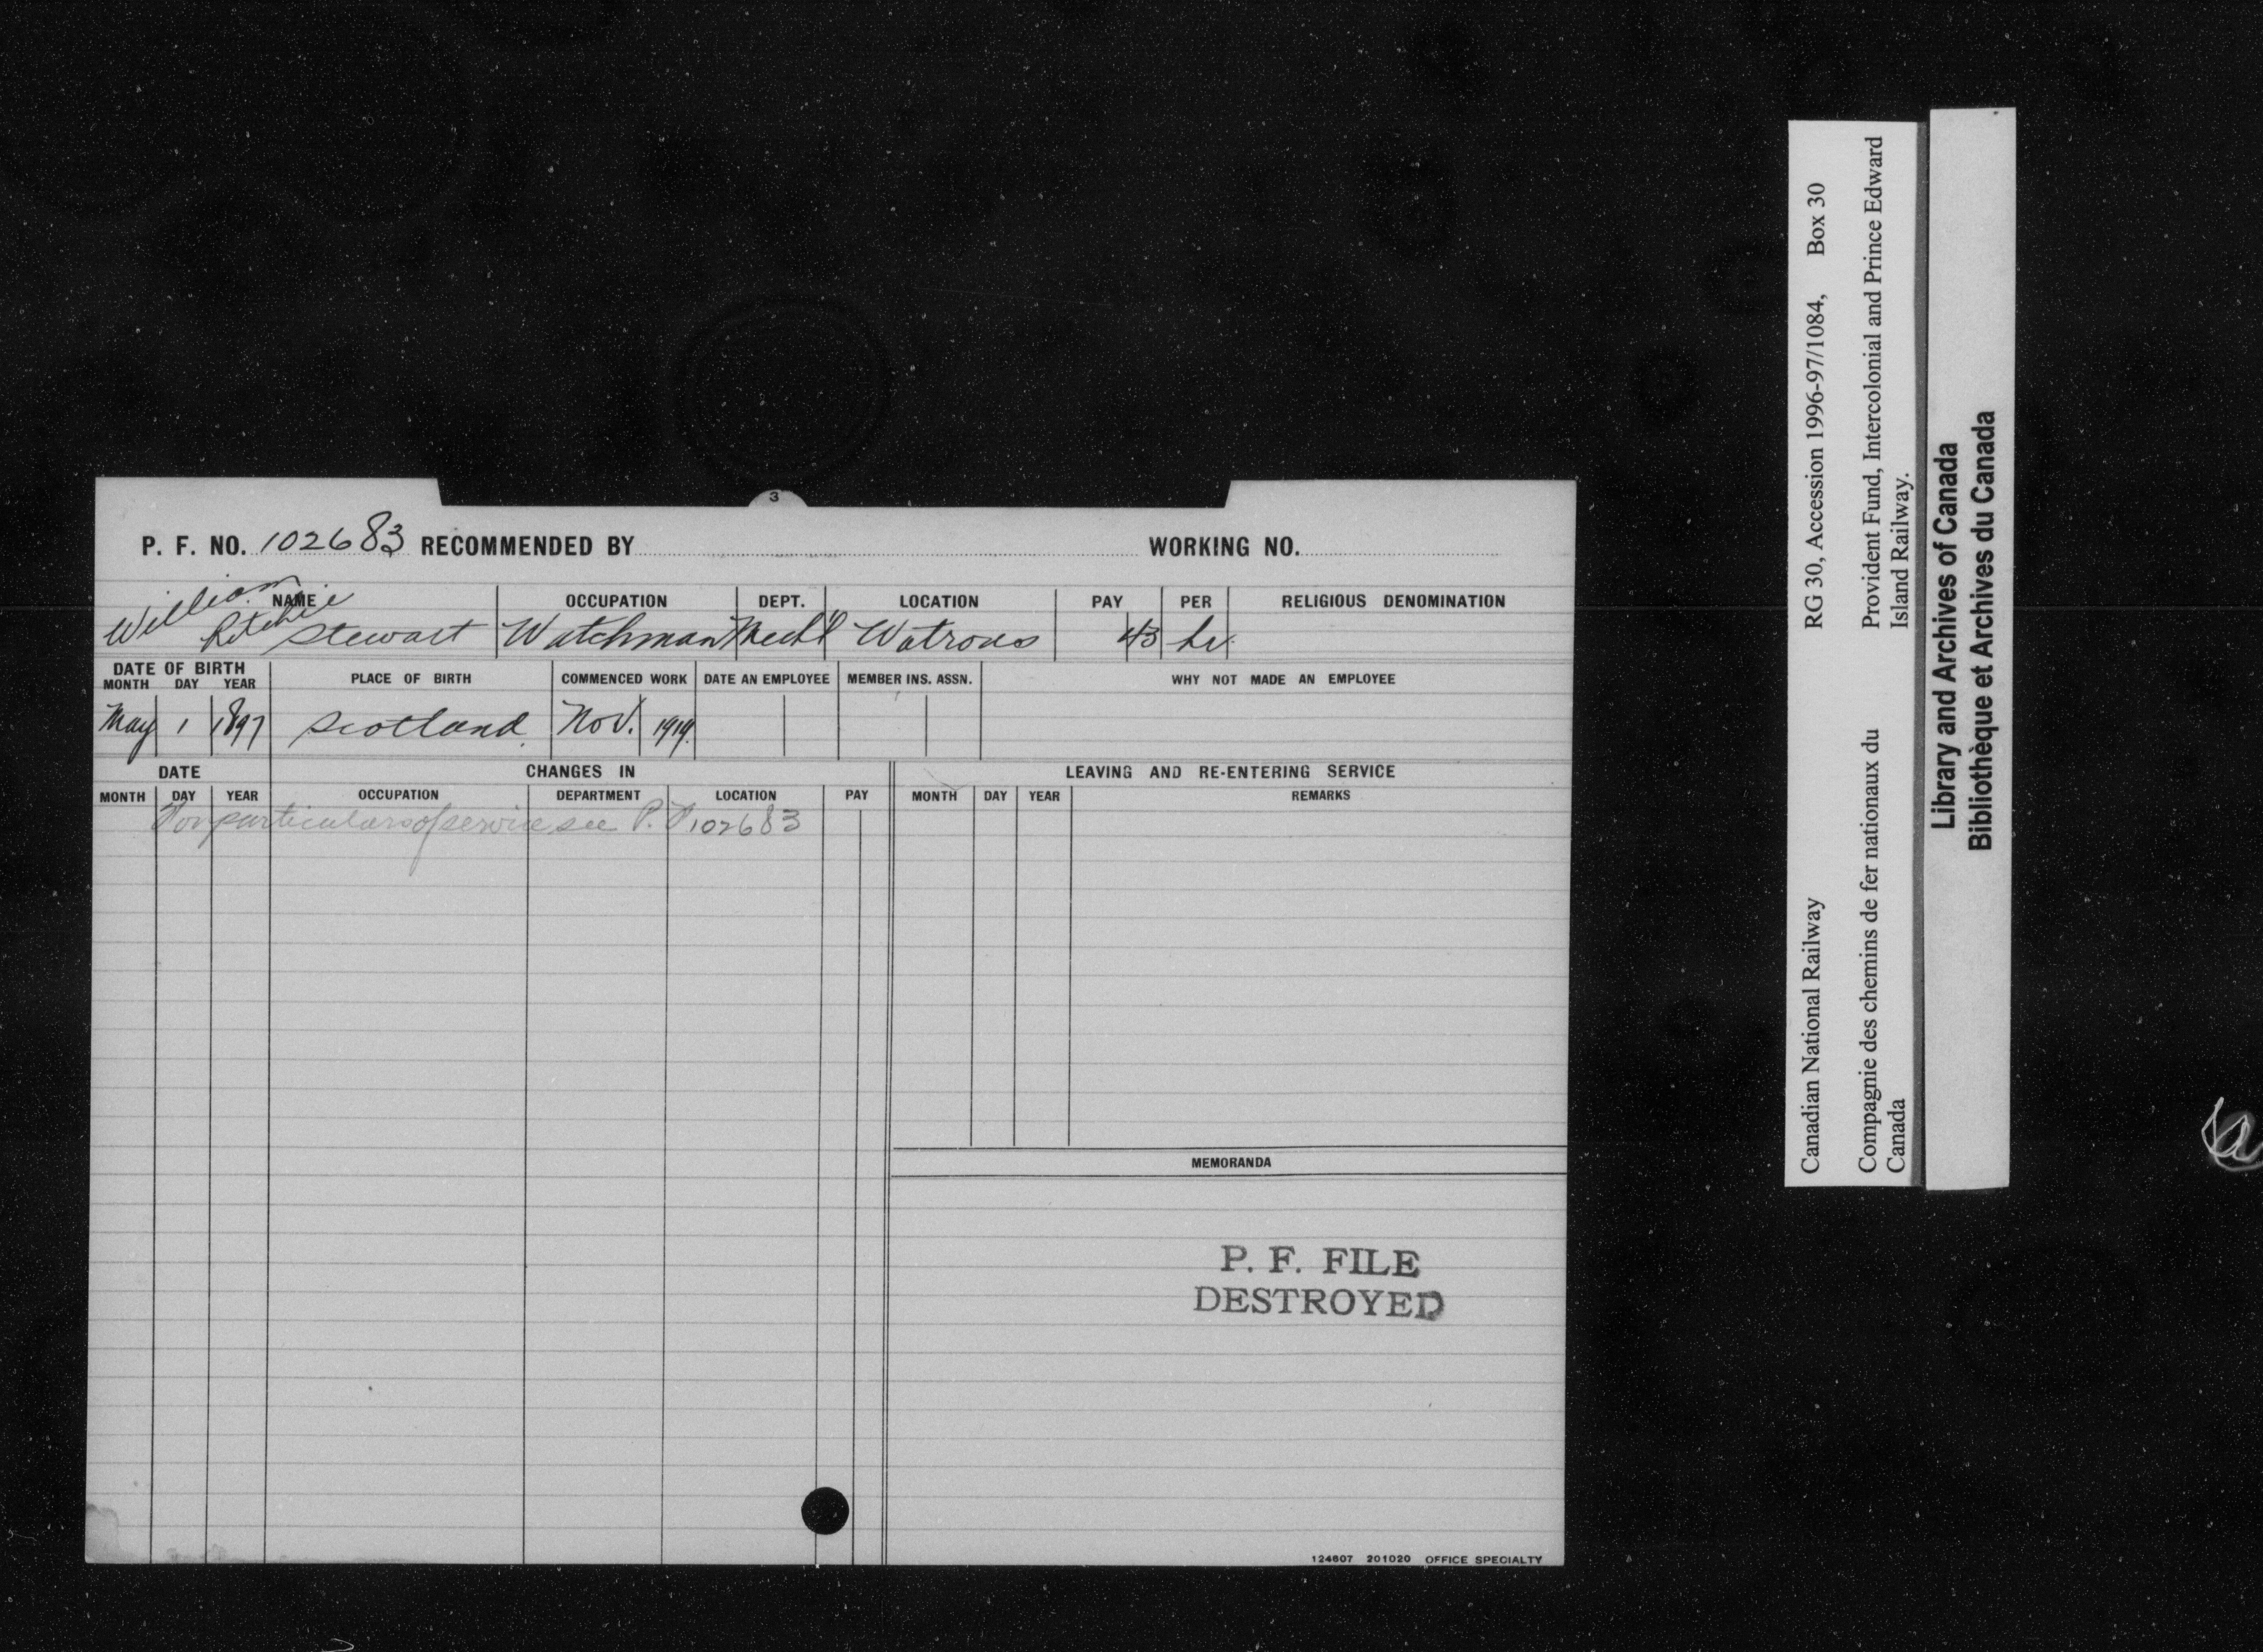 3
P. F. NO. 102683 RECOMMENDED BY WORKING NO.
NAME OCCUPATION DEPT. LOCATION PAY PER RELIGIOUS DENOMINATION
William Ritchie Stewart Watchman Mechl Watrous 43 hr.
DATE OF BIRTH PLACE OF BIRTH COMMENCED WORK DATE AN EMPLOYEE MEMBER INS. ASSN. WHY NOT MADE AN EMPLOYEE
MONTH DAY YEAR
May 1 1897 Scotland. Nov. 1919.
DATE CHANGES IN LEAVING AND RE-ENTERING SERVICE
MONTH DAY YEAR OCCUPATION DEPARTMENT LOCATION PAY MONTH DAY YEAR REMARKS
For particulars of service see P. F. 102683
MEMORANDA
P. F. FILE
DESTROYED
124607 201020 OFFICE SPECIALTY
Canadian National Railway RG 30, Accession 1996-97/1084, Box 30
Compagnie des chemins de fer nationaux du Provident Fund, Intercolonial and Prince Edward
Canada Island Railway.
Library and Archives of Canada
Bibliothèque et Archives du Canada